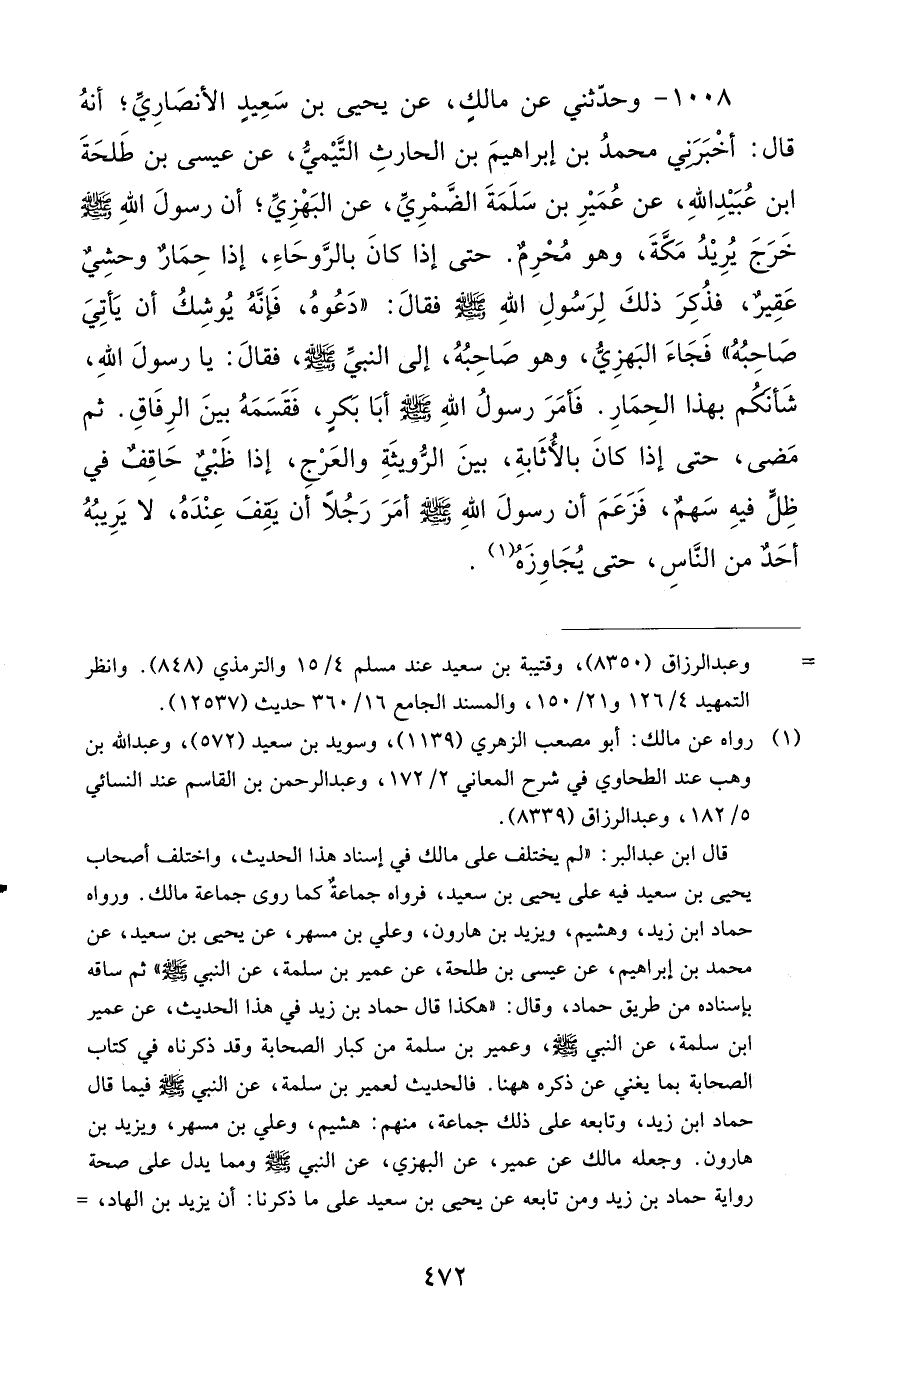 ١٠٠٨- وحدّثني عن مالكٍ، عن يحيى بن سَعِيدٍ الأنصَاريِّ؛ أنهُ
قال: أخْبَرَنِي محمدُ بن إبراهيمَ بن الحارثِ التَّيْميُّ، عن عيسى بن طَلحَةَ
ابن عُبَيْدِالله، عن عُمَيْرِ بن سَلَمَةَ الضَّمْريِّ، عن البَهْزِيِّ؛ أن رسولَ اللهِ ﷺ
خَرَجَ يُرِيْدُ مَكَّةَ، وهو مُحْرِمٌ. حتى إذا كانَ بالرَّوحَاءِ، إذا حِمَارٌ وحشِيٌّ
عَقِيرٌ، فذُكِرَ ذلكَ لِرَسُولِ اللهِ ﷺ فقالَ: «دَعُوهُ، فَإنَّهُ يُوشِكُ أن يَأتِيَ
صَاحِبُهُ» فَجَاءَ البَهزِيُّ، وهو صَاحِبُهُ، إلى النبيِّ ﷺ، فقالَ: يا رسولَ اللهِ،
شَأنَكُم بهذا الحِمَارِ. فَأمَرَ رسولُ اللهِ ﷺ أبَا بَكرٍ، فَقَسَمَهُ بينَ الرِفَاقِ. ثم
مَضى، حتى إذا كانَ بالأُثَابةِ، بينَ الرُّويثَةِ والعَرْجِ، إذا ظَبْيٌ حَاقِفٌ في
ظِلٍّ فيهِ سَهمٌ، فَزَعَمَ أن رسولَ اللهِ ﷺ أمَرَ رَجُلاً أن يَقِفَ عِنْدَهُ، لا يَرِيبُهُ
أحَدٌ من النَّاسِ، حتى يُجَاوِزَهُ(١).
= وعبدالرزاق (٨٣٥٠)، وقتيبة بن سعيد عند مسلم ٤/ ١٥ والترمذي (٨٤٨). وانظر
التمهيد ٤/ ١٢٦ و٢١/ ١٥٠، والمسند الجامع ١٦/ ٣٦٠ حديث (١٢٥٣٧).
(١) رواه عن مالك: أبو مصعب الزهري (١١٣٩)، وسويد بن سعيد (٥٧٢)، وعبدالله بن
وهب عند الطحاوي في شرح المعاني ٢/ ١٧٢، وعبدالرحمن بن القاسم عند النسائي
٥/ ١٨٢، وعبدالرزاق (٨٣٣٩).
قال ابن عبدالبر: «لم يختلف على مالك في إسناد هذا الحديث، واختلف أصحاب
يحيى بن سعيد فيه على يحيى بن سعيد، فرواه جماعةٌ كما روى جماعة مالك. ورواه
حماد ابن زيد، وهشيم، ويزيد بن هارون، وعلي بن مسهر، عن يحيى بن سعيد، عن
محمد بن إبراهيم، عن عيسى بن طلحة، عن عمير بن سلمة، عن النبي ﷺ» ثم ساقه
بإسناده من طريق حماد، وقال: «هكذا قال حماد بن زيد في هذا الحديث، عن عمير
ابن سلمة، عن النبي ﷺ، وعمير بن سلمة من كبار الصحابة وقد ذكرناه في كتاب
الصحابة بما يغني عن ذكره ههنا. فالحديث لعمير بن سلمة، عن النبي ﷺ فيما قال
حماد ابن زيد، وتابعه على ذلك جماعة، منهم: هشيم، وعلي بن مسهر، ويزيد بن
هارون. وجعله مالك عن عمير، عن البهزي، عن النبي ﷺ ومما يدل على صحة
رواية حماد بن زيد ومن تابعه عن يحيى بن سعيد على ما ذكرنا: أن يزيد بن الهاد، =
٤٧٢